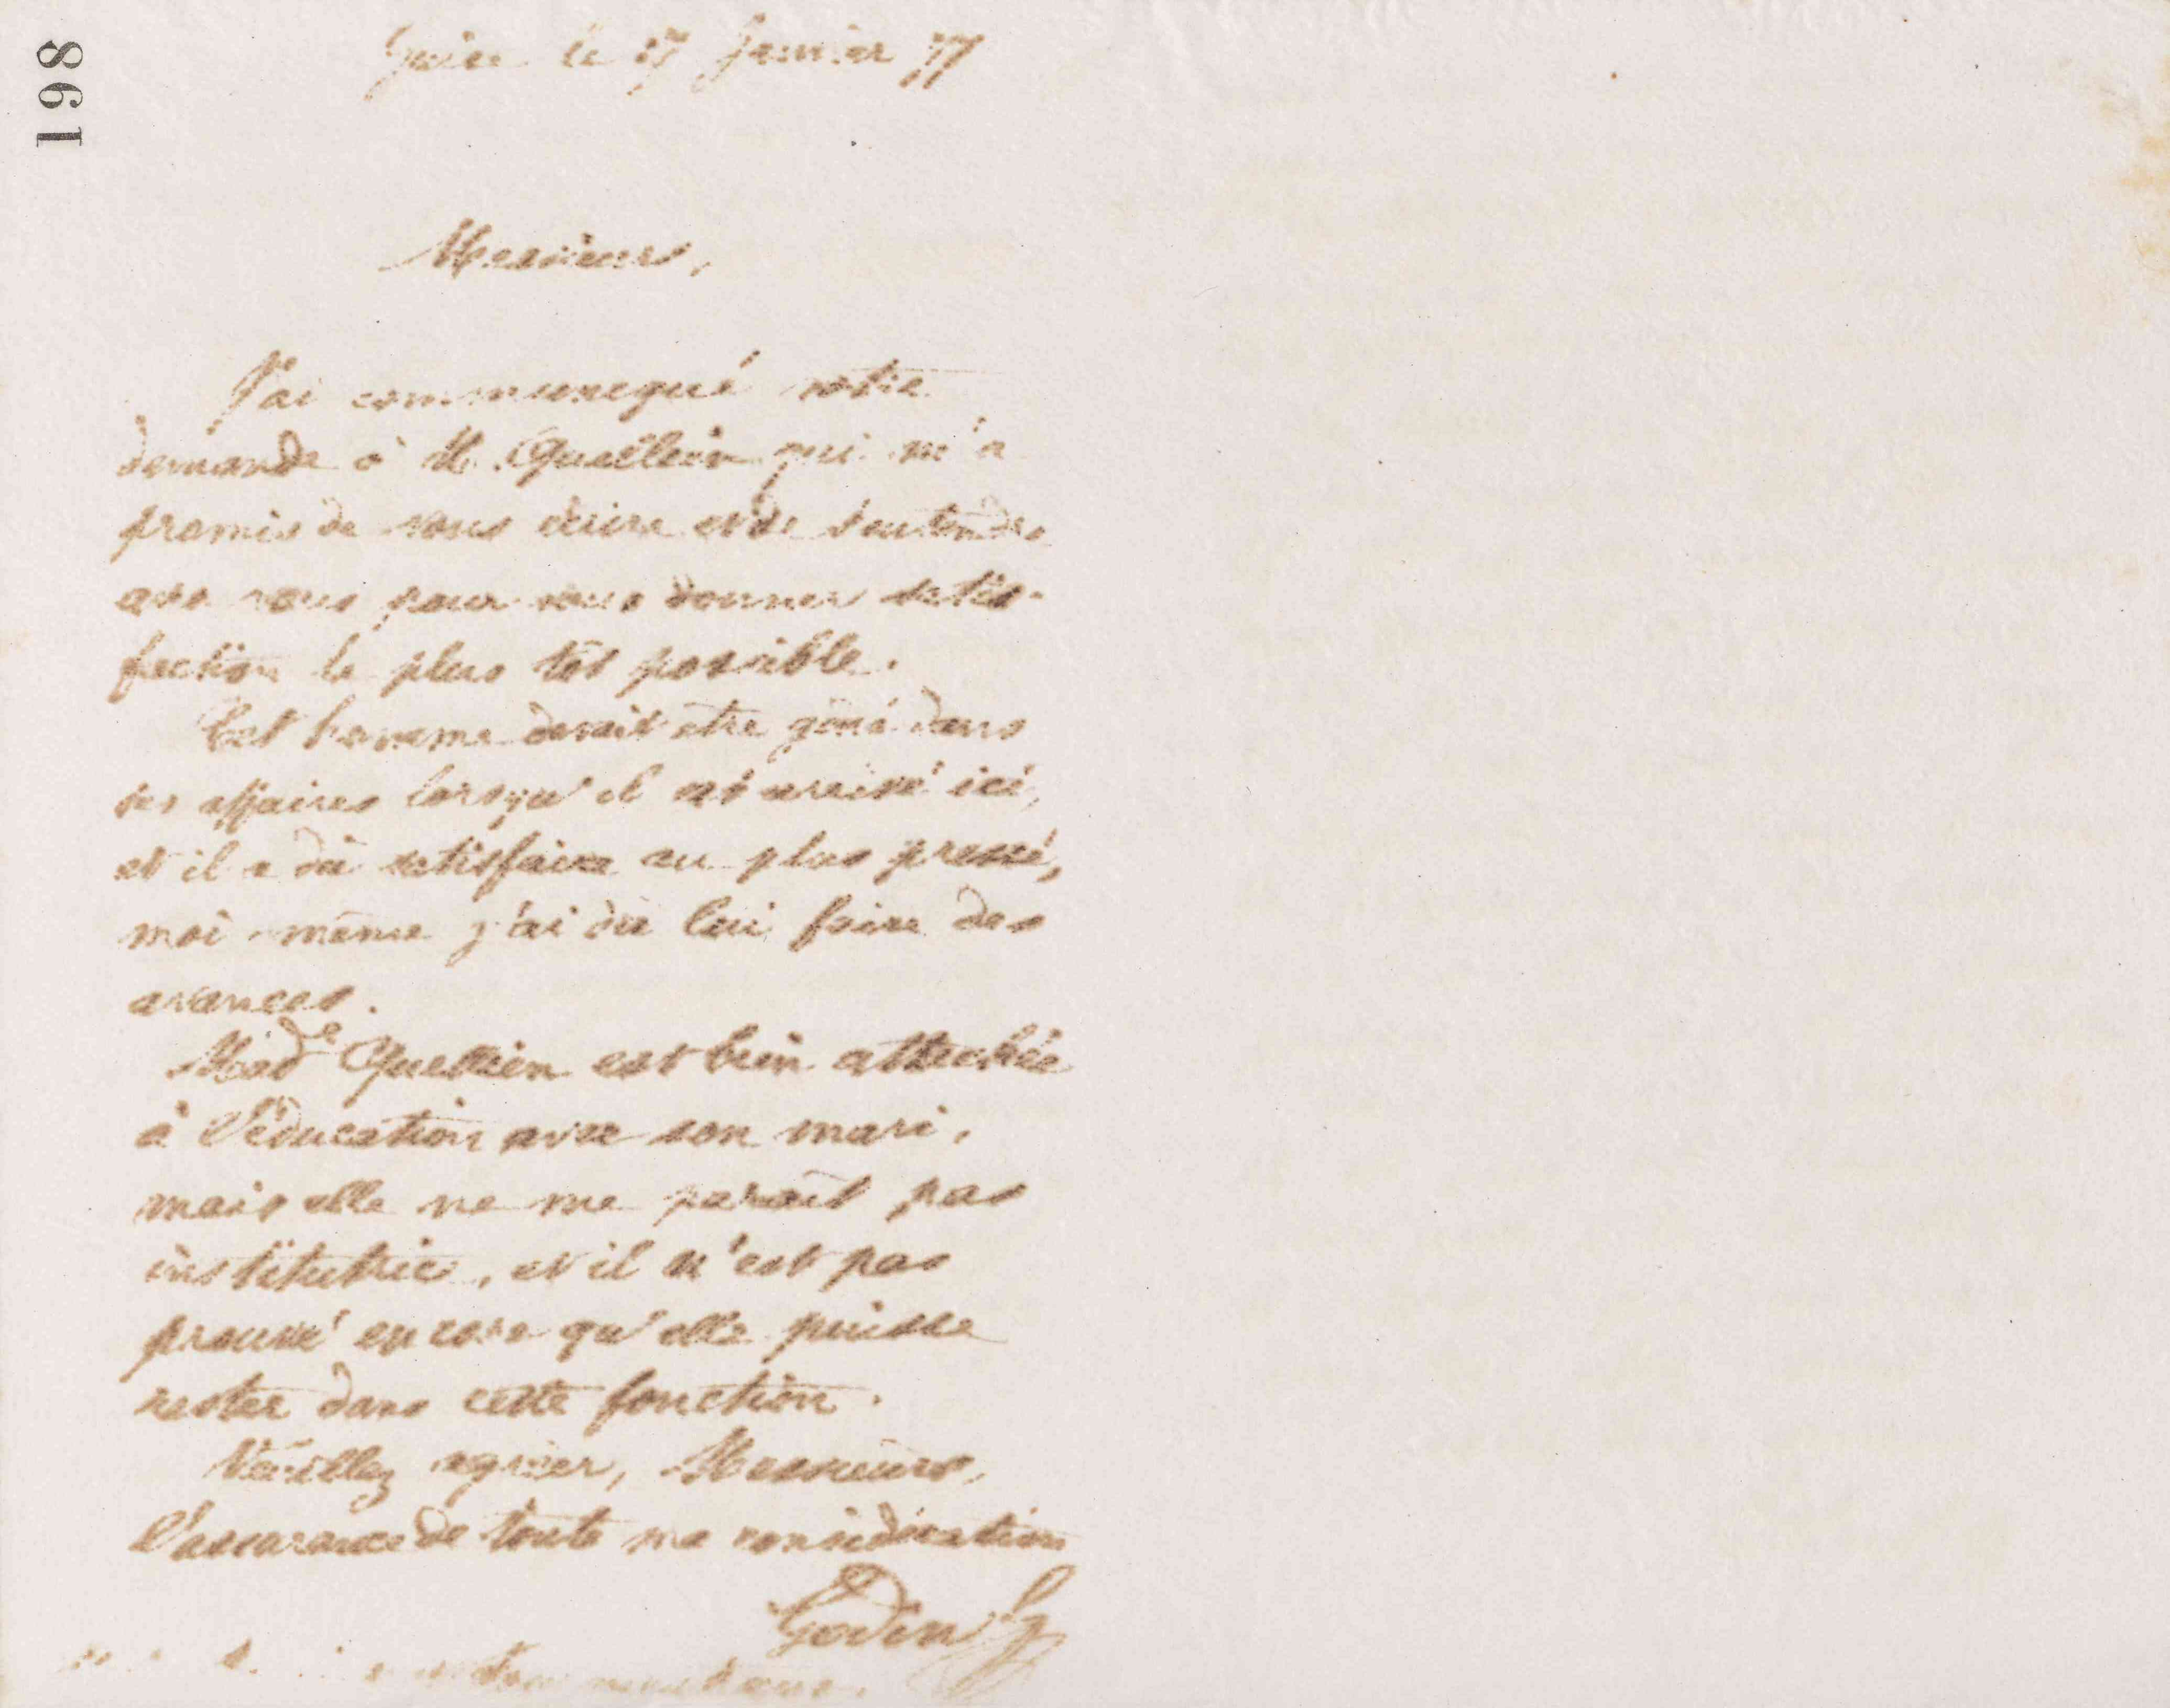 198
Guise le 17 Janvier 77
Messieurs,
J'ai communequé votre
demande à M. Quellien qui m'a
promis de vous écrire et de s'entendre
avec vous pour vous donner satis-
faction le plus tôt possible.
Cet homme devait être gêné dans
ses affaires lorsqu'il est arrivé ici,
et il a dû satisfaire au plus pressé,
moi-même j'ai dû lui faire des
avances.
Made Quellien est bien attachée
à l'éducation avec son mari,
mais elle ne me paraît pas
institutrice, et il n'est pas
prouvé encore qu'elle puisse
rester dans cette fonction.
Veuillez agréer, Messieurs,
l'assurance de toute ma considération
Godin